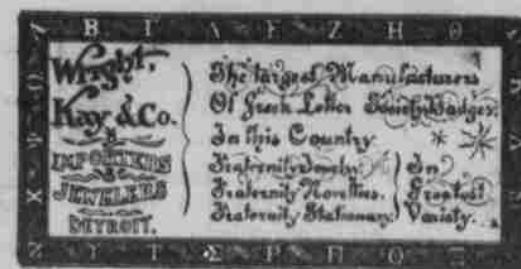 A B Γ Δ E Z H Θ
Wright,
Kay & Co.
IMPORTERS
&
JEWELERS
DETROIT.
The largest Manufacturers
Of Greek Letter Society Badges.
In this Country
Fraternity Jewelry.
Fraternity Novelties.
Fraternity Stationary.
In
Greatest
Variety.
X Ψ Ω
Σ P Π O Ξ